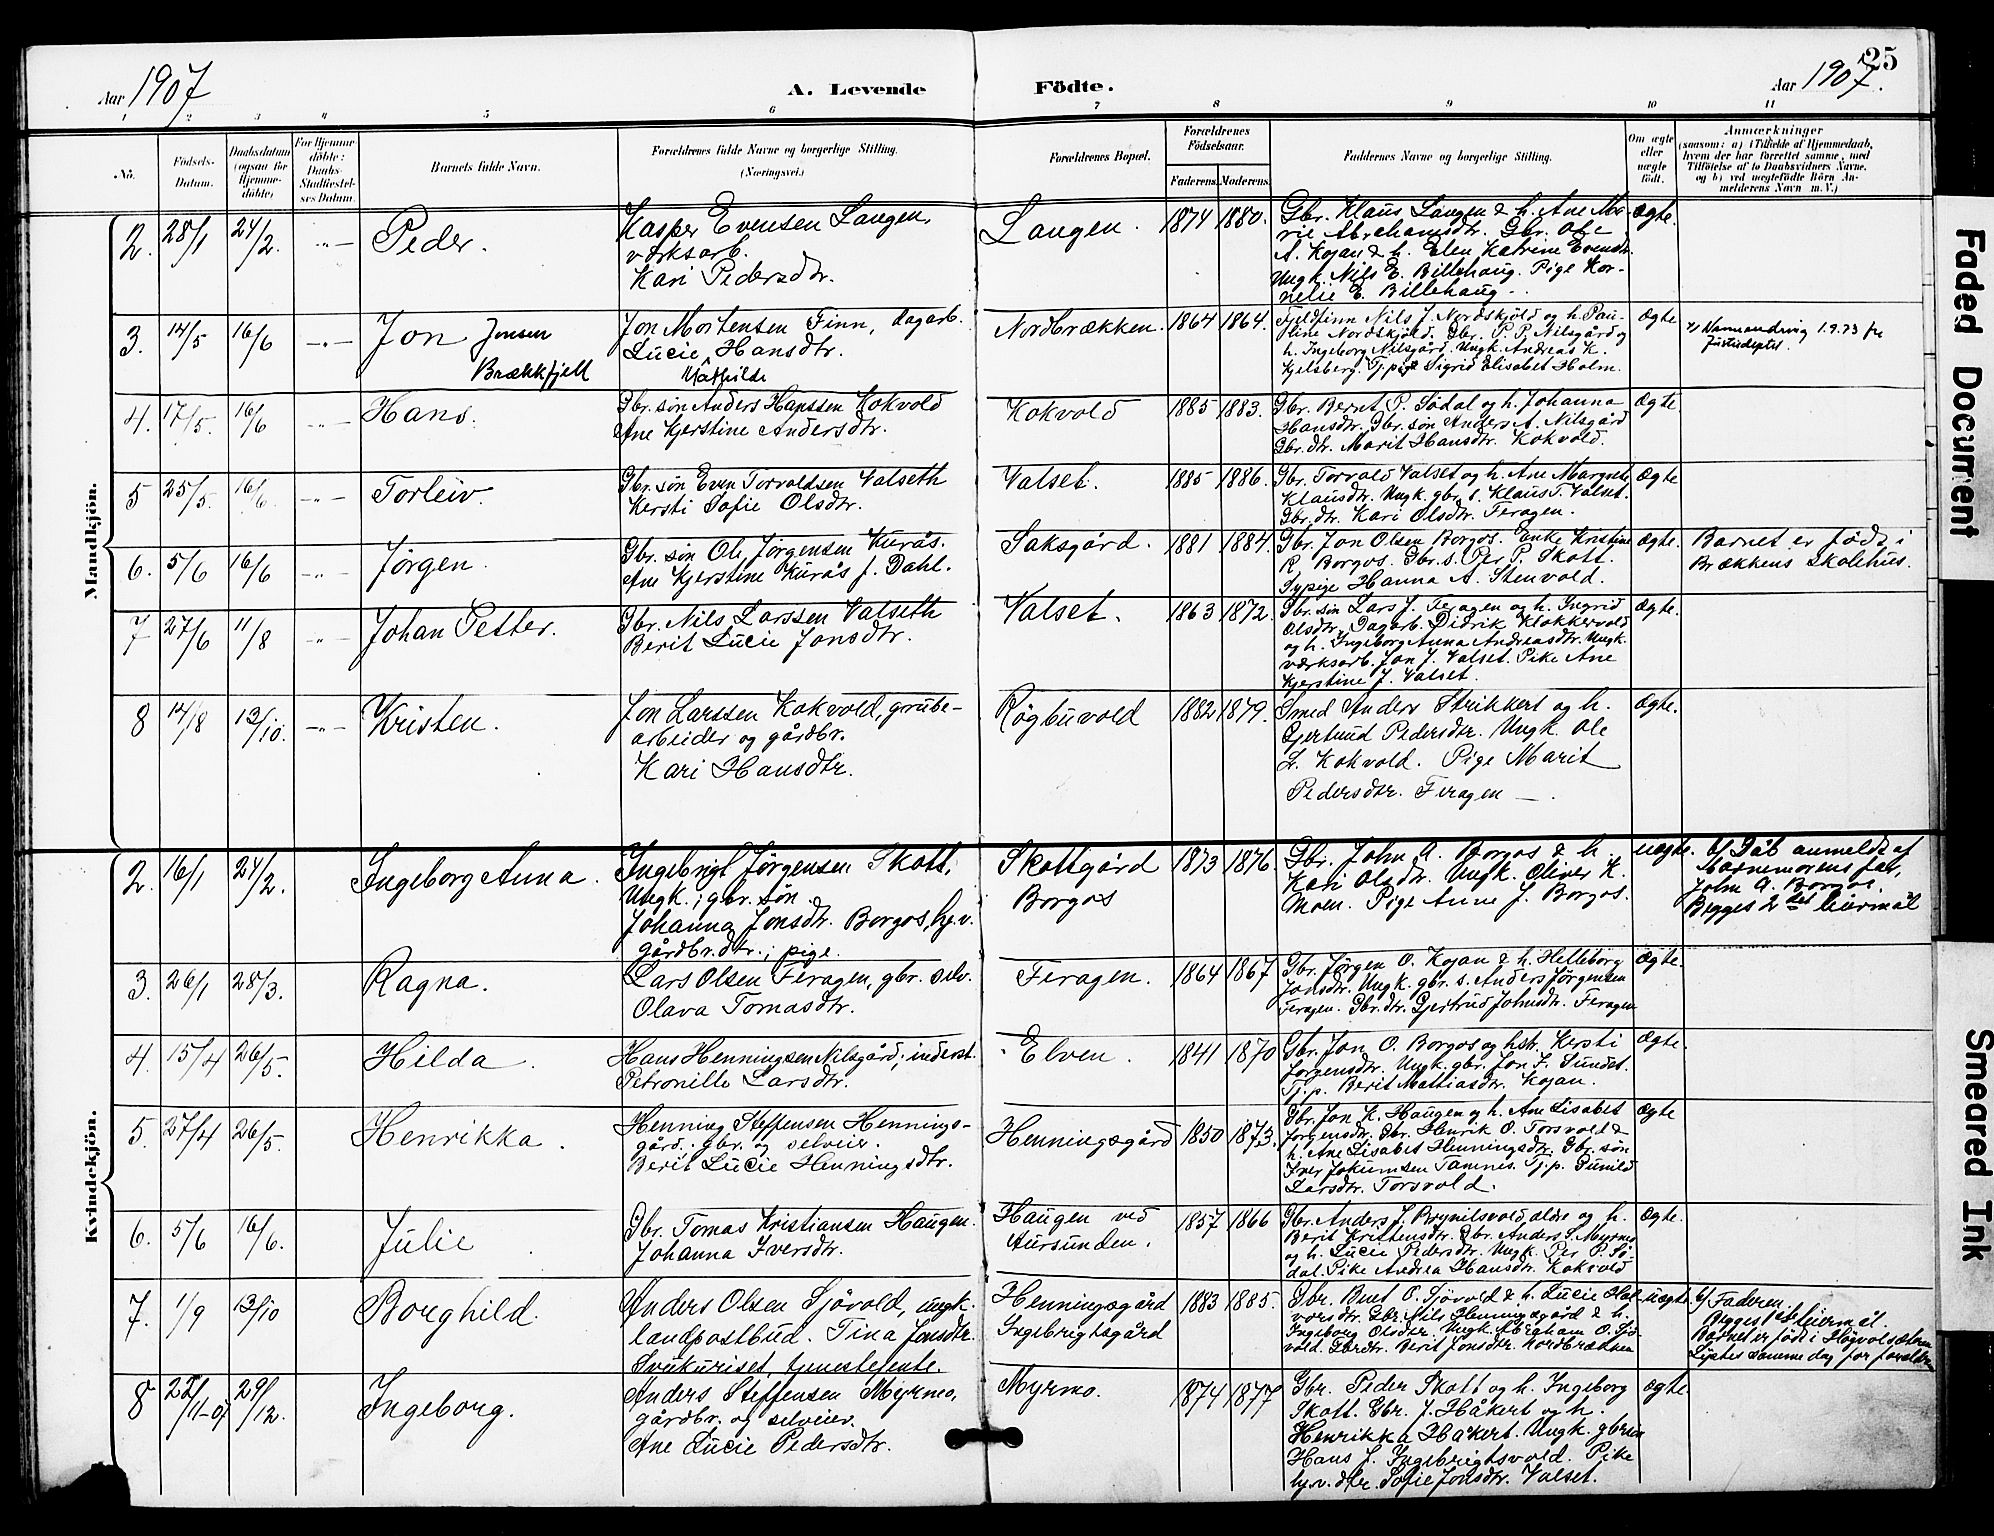 25
Aar 1907
A. Levende Födte.
Aar 1907.
1 2 3 4 5 6 7 8 9 10 11
No.
Födsels-Datum.
Daabsdatum (ogsaa for Hjemmedöbte)
For Hjemmedöbte: Daabs-Stadfæstelses Datum.
Barnets fulde Navn.
Forældrenes fulde Navne og borgerlige Stilling. (Næringsvei.)
Forældrenes Bopæl.
Forældrenes Födselsaar.
Faderens. Moderens.
Faddernes Navne og borgerlige Stilling.
Om ægte eller uægte födt.
Anmærkninger
(saasom: a) i Tilfælde af Hjemmedaab, hvem der har forrettet samme, med Tilföielse af to Daabsvidners Navne, og b) ved uægtefödte Börn Anmelderens Navn m. V.)
Mandkjön.
2. 28/1 24/2. -"- Peder.
Kasper Evensen Langen,
værksarb.
Kari Pedersdtr.
Langen. 1874 1880.
Gbr. Klaus Langen & h. Ane Ma-
rie Abrahamsdtr. Gbr. Ole
A. Kojan & h. Elen Katrine Evensdtr.
Ungk. Nils E. Billehaug. Pige Kor-
nelie E. Billehaug.
Ægte.
3. 14/5 16/6 -"- Jon Jonsen
Brækkfjell
Jon Mortensen Finn, dagarb.
Lucie Hansdtr.
Mathilde
Nordbrækken. 1864 1864.
Fjeldfinn Nils J. Nordskjöld og h. Pau-
line Nordskjöld. Gbr. P. P. Nilsgård og
h. Ingeborg Nilsgård. Ungk. Andreas K.
Kjelsberg. Tj.pige Sigrid Elisabet Holm.
Ægte
Navneendring 1.9.73 fra
Justisdeptet.
4. 17/5. 16/6 -"- Hans.
Gbr. søn Anders Hanssen Kokvold
Ane Kjerstine Andersdtr.
Kokvold 1885 1883.
Gbr. Bernt P. Sødal og h. Johanna
Hansdtr. Gbr. søn Anders A. Nilsgård
Gbr. dtr. Marit Hansdtr. Kokvold.
Ægte.
5 25/5. 16/6. -"- Torleiv.
Gbr. søn Even Torvoldsen Valseth
Kersti Sofie Olsdtr.
Valset. 1885 1886.
Gbr. Torvald Valset og h. Ane Margrete
Klausdtr. Ungk. gbr. s. Klaus T. Valset.
Gbr. dtr. Kari Olsdtr. Feragen.
Ægte
6. 5/6 16/6 -"- Jørgen.
Gbr. søn Ole Jørgensen Kurås.
Ane Kjerstine Kurås f. Dahl.
Saksgård. 1881 1884.
Gbr. Jon Olsen Borgos. Enke Kristine
R. Borgos. Gbr. s. Per P. Skott.
Sypige Hanna A. Stenvold.
Ægte.
Barnet er født i
Brækkens Skolehus.
7 27/6 11/8 -"- Johan Petter.
Gbr. Nils Larssen Valseth
Berit Lucie Jonsdtr.
Valset. 1863 1872.
Gbr. søn Lars J. Feragen og h. Ingrid
Olsdtr. Dagarb. Didrik Klokkervold
og h. Ingeborg Anna Andreasdtr. Ungk.
værksarb. Jon J. Valset. Pike Ane
Kjerstine J. Valset.
Ægte.
8 14/8 13/10. -"- Kristen.
Jon Larssen Kokvold, grube-
arbeider og gårdbr.
Kari Hansdtr.
Røgbuvold 1882 1879.
Smed Anders Strikkert og h.
Gjertrud Pedersdtr. Ungk. Ole
L. Kokvold. Pige Marit
Pedersdtr. Feragen.
Ægte.
Kvindekjön.
2. 16/1 24/2. Ingeborg Anna.
Ingebrigt Jørgensen Skott,
Ungk., gbr. søn.
Johanna Jonsdtr. Borgos, hj.v.
gårdbr. dtr., pige.
Skottgård
Borgos
1873 1876
Gbr. John A. Borgos & h.
Kari Olsdtr. Ungk. Oliver K.
Moen. Pige Anne J. Borgos.
uægte.
b) Dåb anmeldt af
barnemorens far,
John A. Borgos.
Begges 2det leiermål
3. 26/1 28/3. Ragna.
Lars Olsen Feragen, gbr. selv.
Olava Tomasdtr.
Feragen. 1864 1867
Gbr. Jørgen O. Kojan & h. Helleborg
Jonsdtr. Ungk. gbr. s. Anders Jørgensen
Feragen. Gbr. dtr. Gjertrud Johnsdtr. Feragen
Ægte.
4. 15/4 26/5. Hilda.
Hans Henningsen Nilsgård, inderst.
Petronille Larsdtr.
Elven. 1841 1870
Gbr. Jon O. Borgos og hstr. Kersti
Jørgensdtr. Ungk. gbr. Jon F. Sundet.
Tj.p. Berit Mattiasdtr. Kojan.
Ægte.
5. 27/4 26/5. Henrikka.
Henning Steffensen Hennings-
gård. gbr. og selveier.
Berit Lucie Henningsdtr.
Henningsgård 1850 1873.
Gbr. Jon K. Haugen og h. Ane Lisabet
Jørgensdtr. Gbr. Henrik O. Torsvold &
h. Ane Lisabet Henningsdtr. Gbr. søn
Iver Jokumsen Tamnes. Tj.p. Gunild
Larsdtr. Torsvold.
Ægte
6. 5/6 16/6. Julie
Gbr. Tomas Kristiansen Haugen.
Johanna Iversdtr.
Haugen ved
Aursunden.
1857 1866
Gbr. Anders J. Brynilsvold, aldre og h.
Berit Kristensdtr. Gbr. Anders S. Myrmo
og h. Lucie Pedersdtr. Ungk. Per P. Sø-
dal. Pike Andrea Hansdtr. Kokvold
Ægte.
7. 1/9 13/10 Borghild.
Anders Olsen Sjøvold, ungk.
landpostbud. Tina Jonsdtr.
tjenestejente.
Henningsgård
Ingebrigtsgård
1883 1885.
Gbr. Bent O. Sjøvold & h. Lucie Hal-
vorsdtr. Gbr. Nils Henningsgård & h.
Ingeborg Olsdtr. Ungk. Abraham O. Sjø-
vold. Gbrdtr. Berit Jonsdtr. Nordbrækken
uægte.
b) Faderen.
Begges 1ste leiermål.
Barnet er født i
Lystes samme dag for forældrene
8 22/11-07 29/12. Ingeborg.
Anders Steffensen Myrmo,
gårdbr. og selveier.
Ane Lucie Pedersdtr.
Myrmo. 1874 1877
Gbr. Peder Skott og h. Ingeborg
Skott. Gbr. J. Håkert og h.
Henrikka Håkert. Ungk. gbrsøn
Hans J. Ingebrigtsvold. Pike
hj.v. dtr. Sofie Jonsdtr. Valset.
ægte.
Faded Document
Smeared Ink